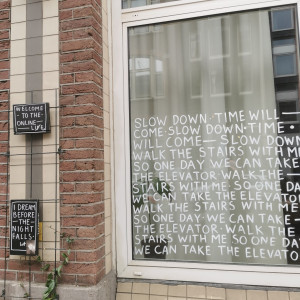 WELCOME
TO THE
ONLINE
LIFE
I DREAM
BEFORE
THE
NIGHT
FALLS
SLOW DOWN · TIME WILL —
COME · SLOW DOWN · TIME ·
WILL COME — SLOW DOWN
WALK THE STAIRS WITH ME
SO ONE DAY WE CAN TAKE
THE ELEVATOR · WALK THE —
STAIRS WITH ME · SO ONE DAY
WE CAN TAKE THE ELEVATOR
WALK THE STAIRS WITH ME
SO ONE DAY WE CAN TAKE —
THE ELEVATOR · WALK THE
STAIRS WITH ME SO ONE DAY
WE CAN TAKE THE ELEVATO